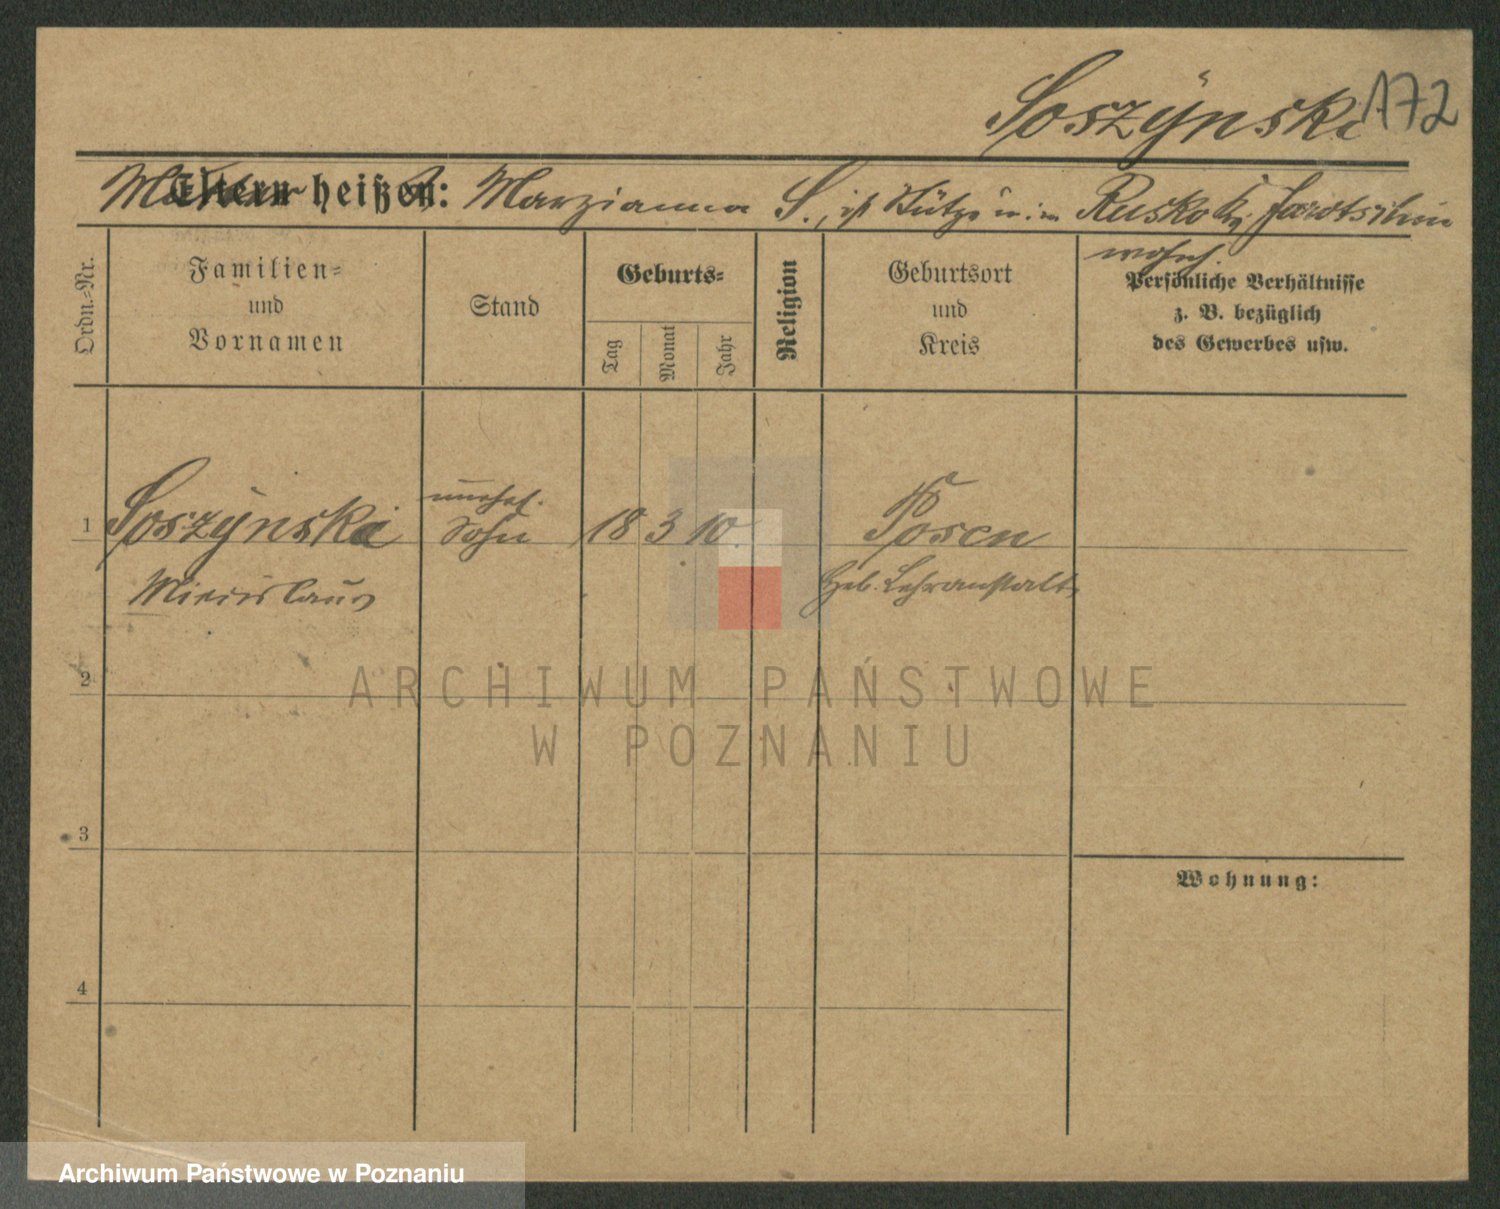 Soszýnski 172
Mutter heißen: Marzianna S., ist Stütze u. in Rusko Kr. Jarotschin
wohnh.
Ordn.-Nr.
Familien-
und
Vornamen
Stand
Geburts-
Tag
Monat
Jahr
Religion
Geburtsort
und
Kreis
Persönliche Verhältnisse
z. B. bezüglich
des Gewerbes usw.
unehel.
1 Soszýnski Sohn 18 3 10. Posen
Miecislaus Heb. Lehranstalt
2
ARCHIWUM PAŃSTWOWE
W POZNANIU
3
Wohnung:
4
Archiwum Państwowe w Poznaniu